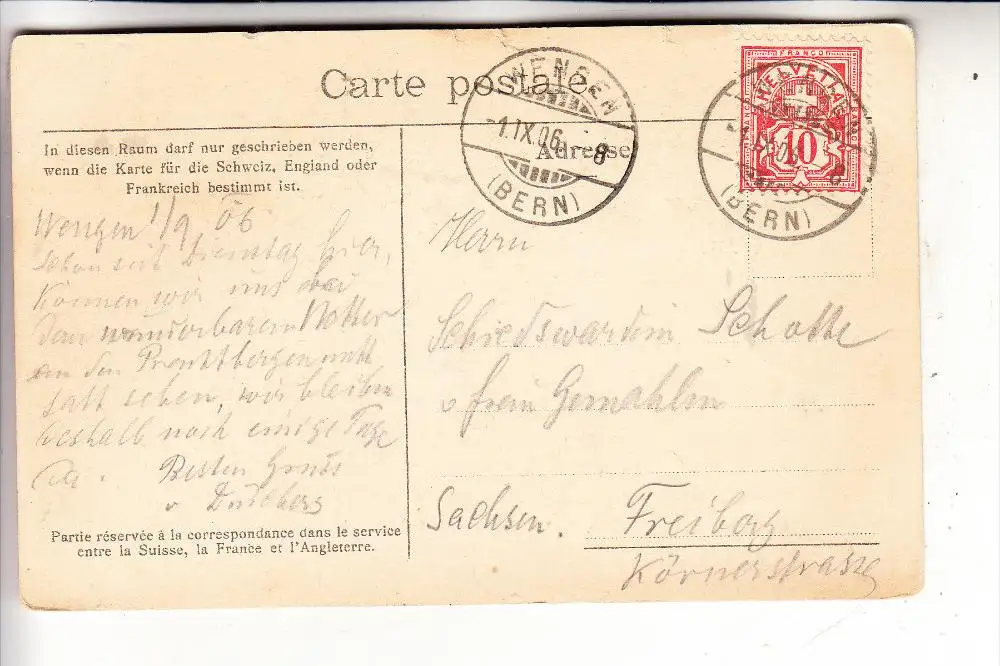 Carte postale
WENGEN
-1.IX.06.-8
(BERN)
Adresse
FRANCO
HELVETIA
10
(BERN)
In diesen Raum darf nur geschrieben werden,
wenn die Karte für die Schweiz, England oder
Frankreich bestimmt ist.
Wengen 1/9 06
schon seit Dienstag hier,
können wir uns bei
dem wunderbaren Wetter
an den Prachtbergen nicht
satt sehen, wir bleiben
deshalb noch einige Tage
da. Besten Gruss
v
Partie réservée à la correspondance dans le service
entre la Suisse, la France et l'Angleterre.
Herrn
Schiedswardein Schotte
Gemahlin
Sachsen. Freiberg
Körnerstrasse